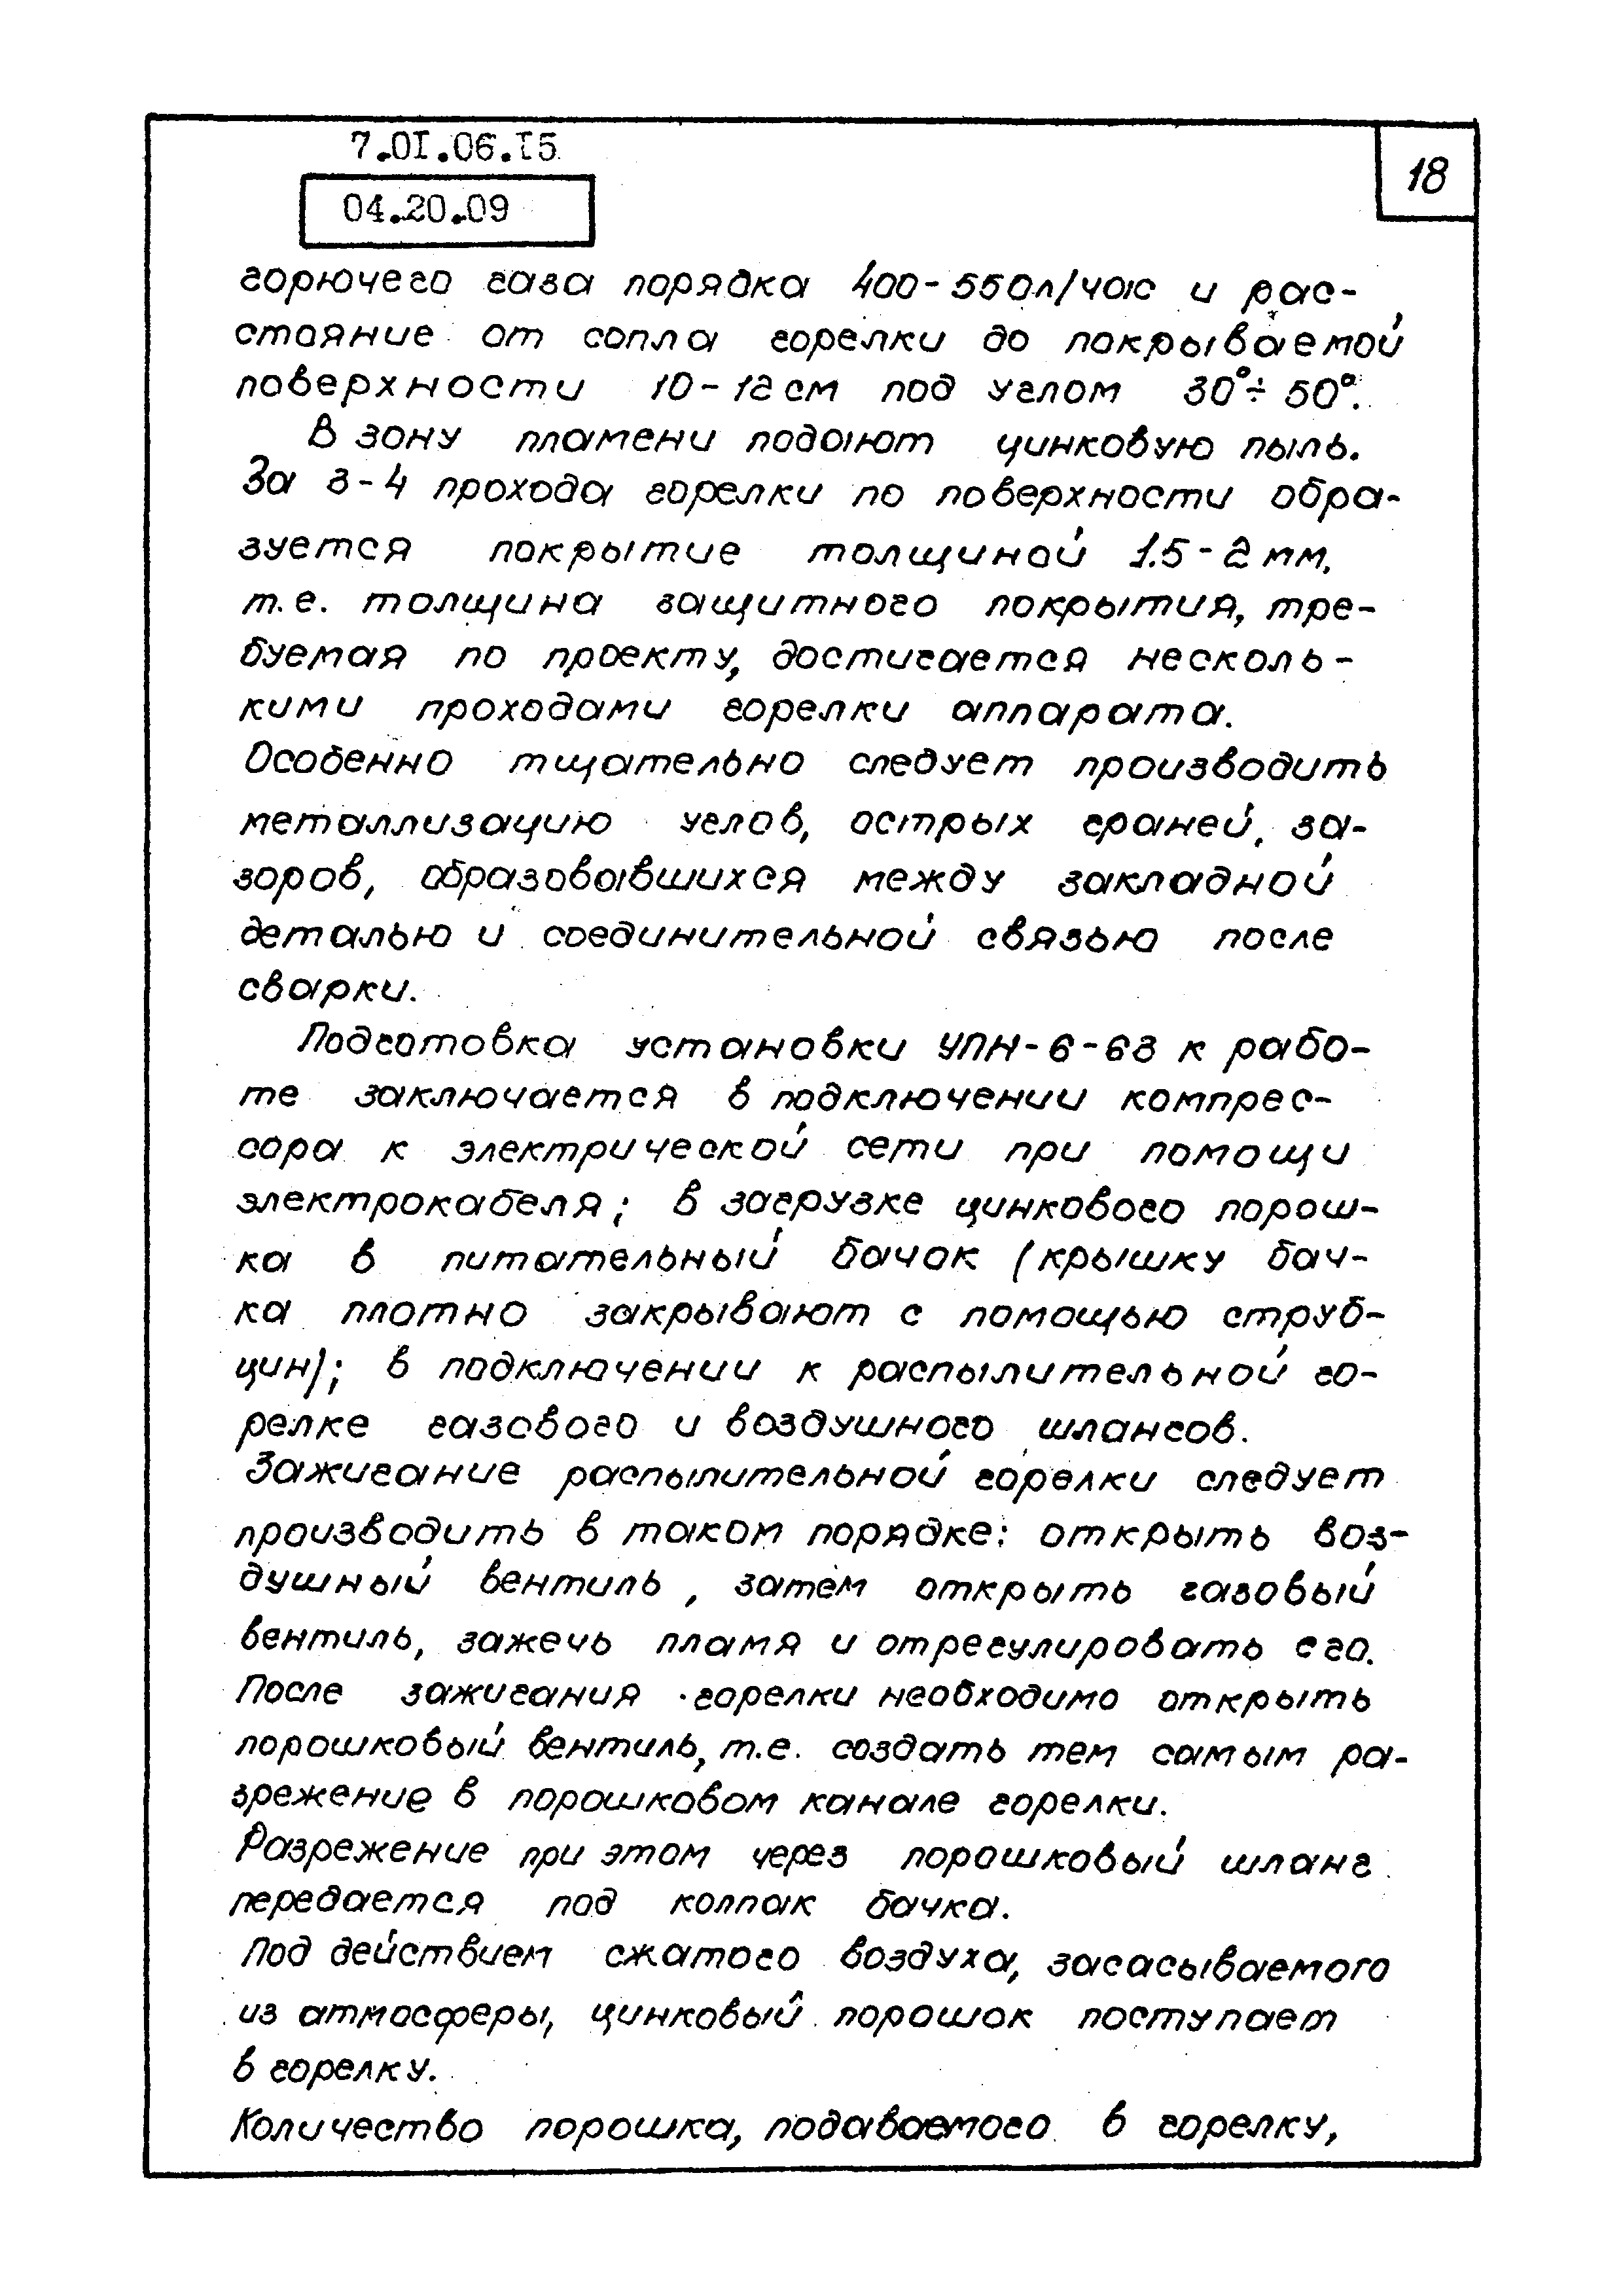 7.01.06.15
04.20.09
18
горючего газа порядка 400-550л/час и рас-
стояние от сопла горелки до покрываемой
поверхности 10-12см под углом 30°÷50°.
В зону пламени подают цинковую пыль.
За 3-4 прохода горелки по поверхности обра-
зуется покрытие толщиной 1.5-2мм,
т.е. толщина защитного покрытия, тре-
буемая по проекту, достигается несколь-
кими проходами горелки аппарата.
Особенно тщательно следует производить
металлизацию углов, острых граней, за-
зоров, образовавшихся между закладной
деталью и соединительной связью после
сварки.
Подготовка установки УПН-6-63 к рабо-
те заключается в подключении компрес-
сора к электрической сети при помощи
электрокабеля; в загрузке цинкового порош-
ка в питательный бачок (крышку бач-
ка плотно закрывают с помощью струб-
цин); в подключении к распылительной го-
релке газового и воздушного шлангов.
Зажигание распылительной горелки следует
производить в таком порядке: открыть воз-
душный вентиль, затем открыть газовый
вентиль, зажечь пламя и отрегулировать его.
После зажигания горелки необходимо открыть
порошковый вентиль, т.е. создать тем самым ра-
зрежение в порошковом канале горелки.
Разрежение при этом через порошковый шланг
передается под колпак бачка.
Под действием сжатого воздуха, засасываемого
из атмосферы, цинковый порошок поступает
в горелку.
Количество порошка, подаваемого в горелку,